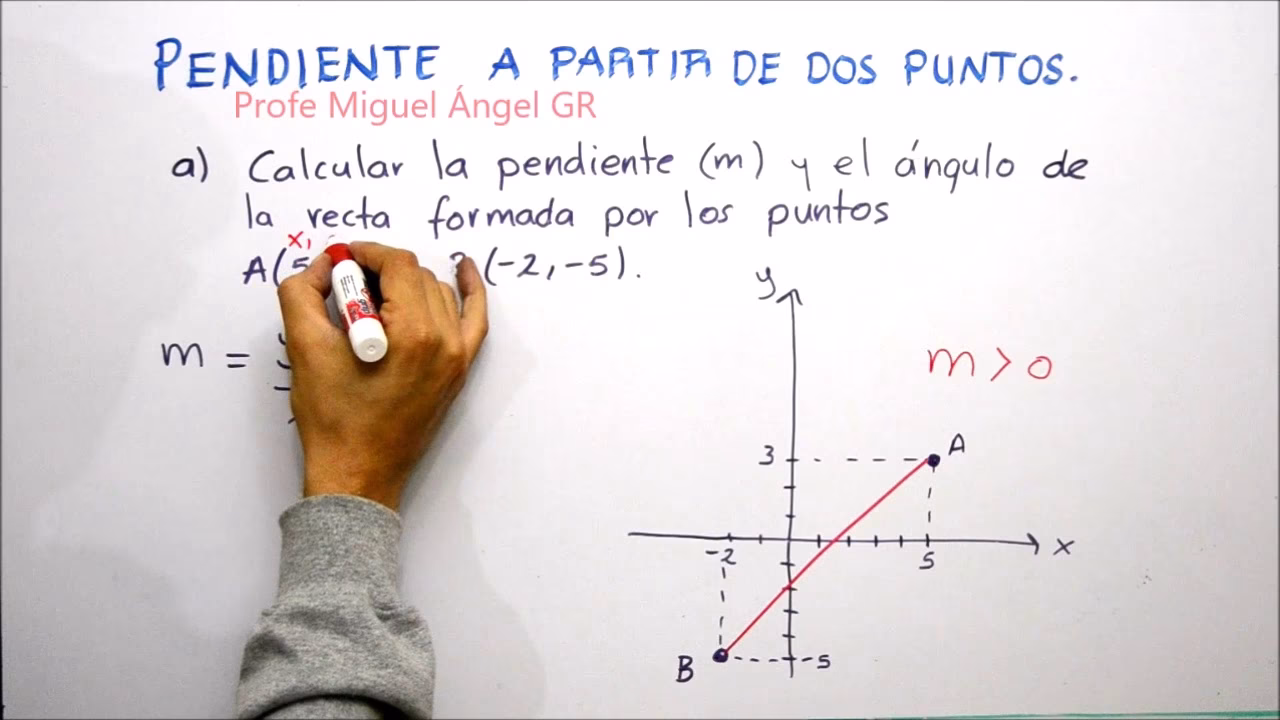 PENDIENTE A PARTIR DE DOS PUNTOS.
Profe Miguel Ángel GR
a) Calcular la pendiente (m) y el ángulo de
la recta formada por los puntos
x₁
A(5 (-2,-5).
m =
y
m > 0
3
A
-2
5
x
B
-5